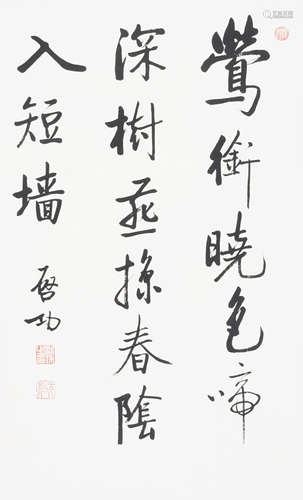 鶯銜曉色啼
深樹燕掠春陰
入短墙
啓功